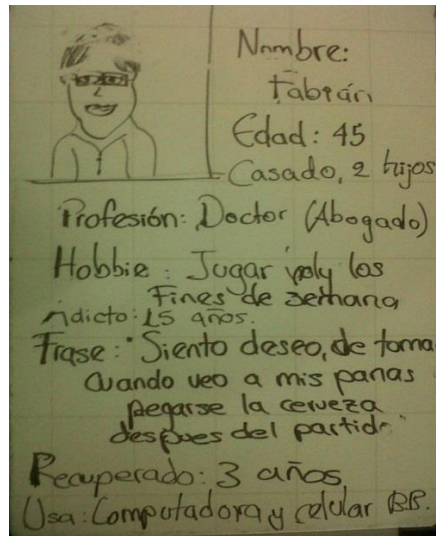 Nombre:
Fabián
Edad: 45
Casado, 2 hijos
Profesión: Doctor (Abogado)
Hobbie: Jugar voly los
Fines de semana
Adicto: 15 años.
Frase: "Siento deseo, de toma
Cuando veo a mis panas
pegarse la cerveza
despues del partido"
Recuperado: 3 años
Usa: Computadora y celular BB.